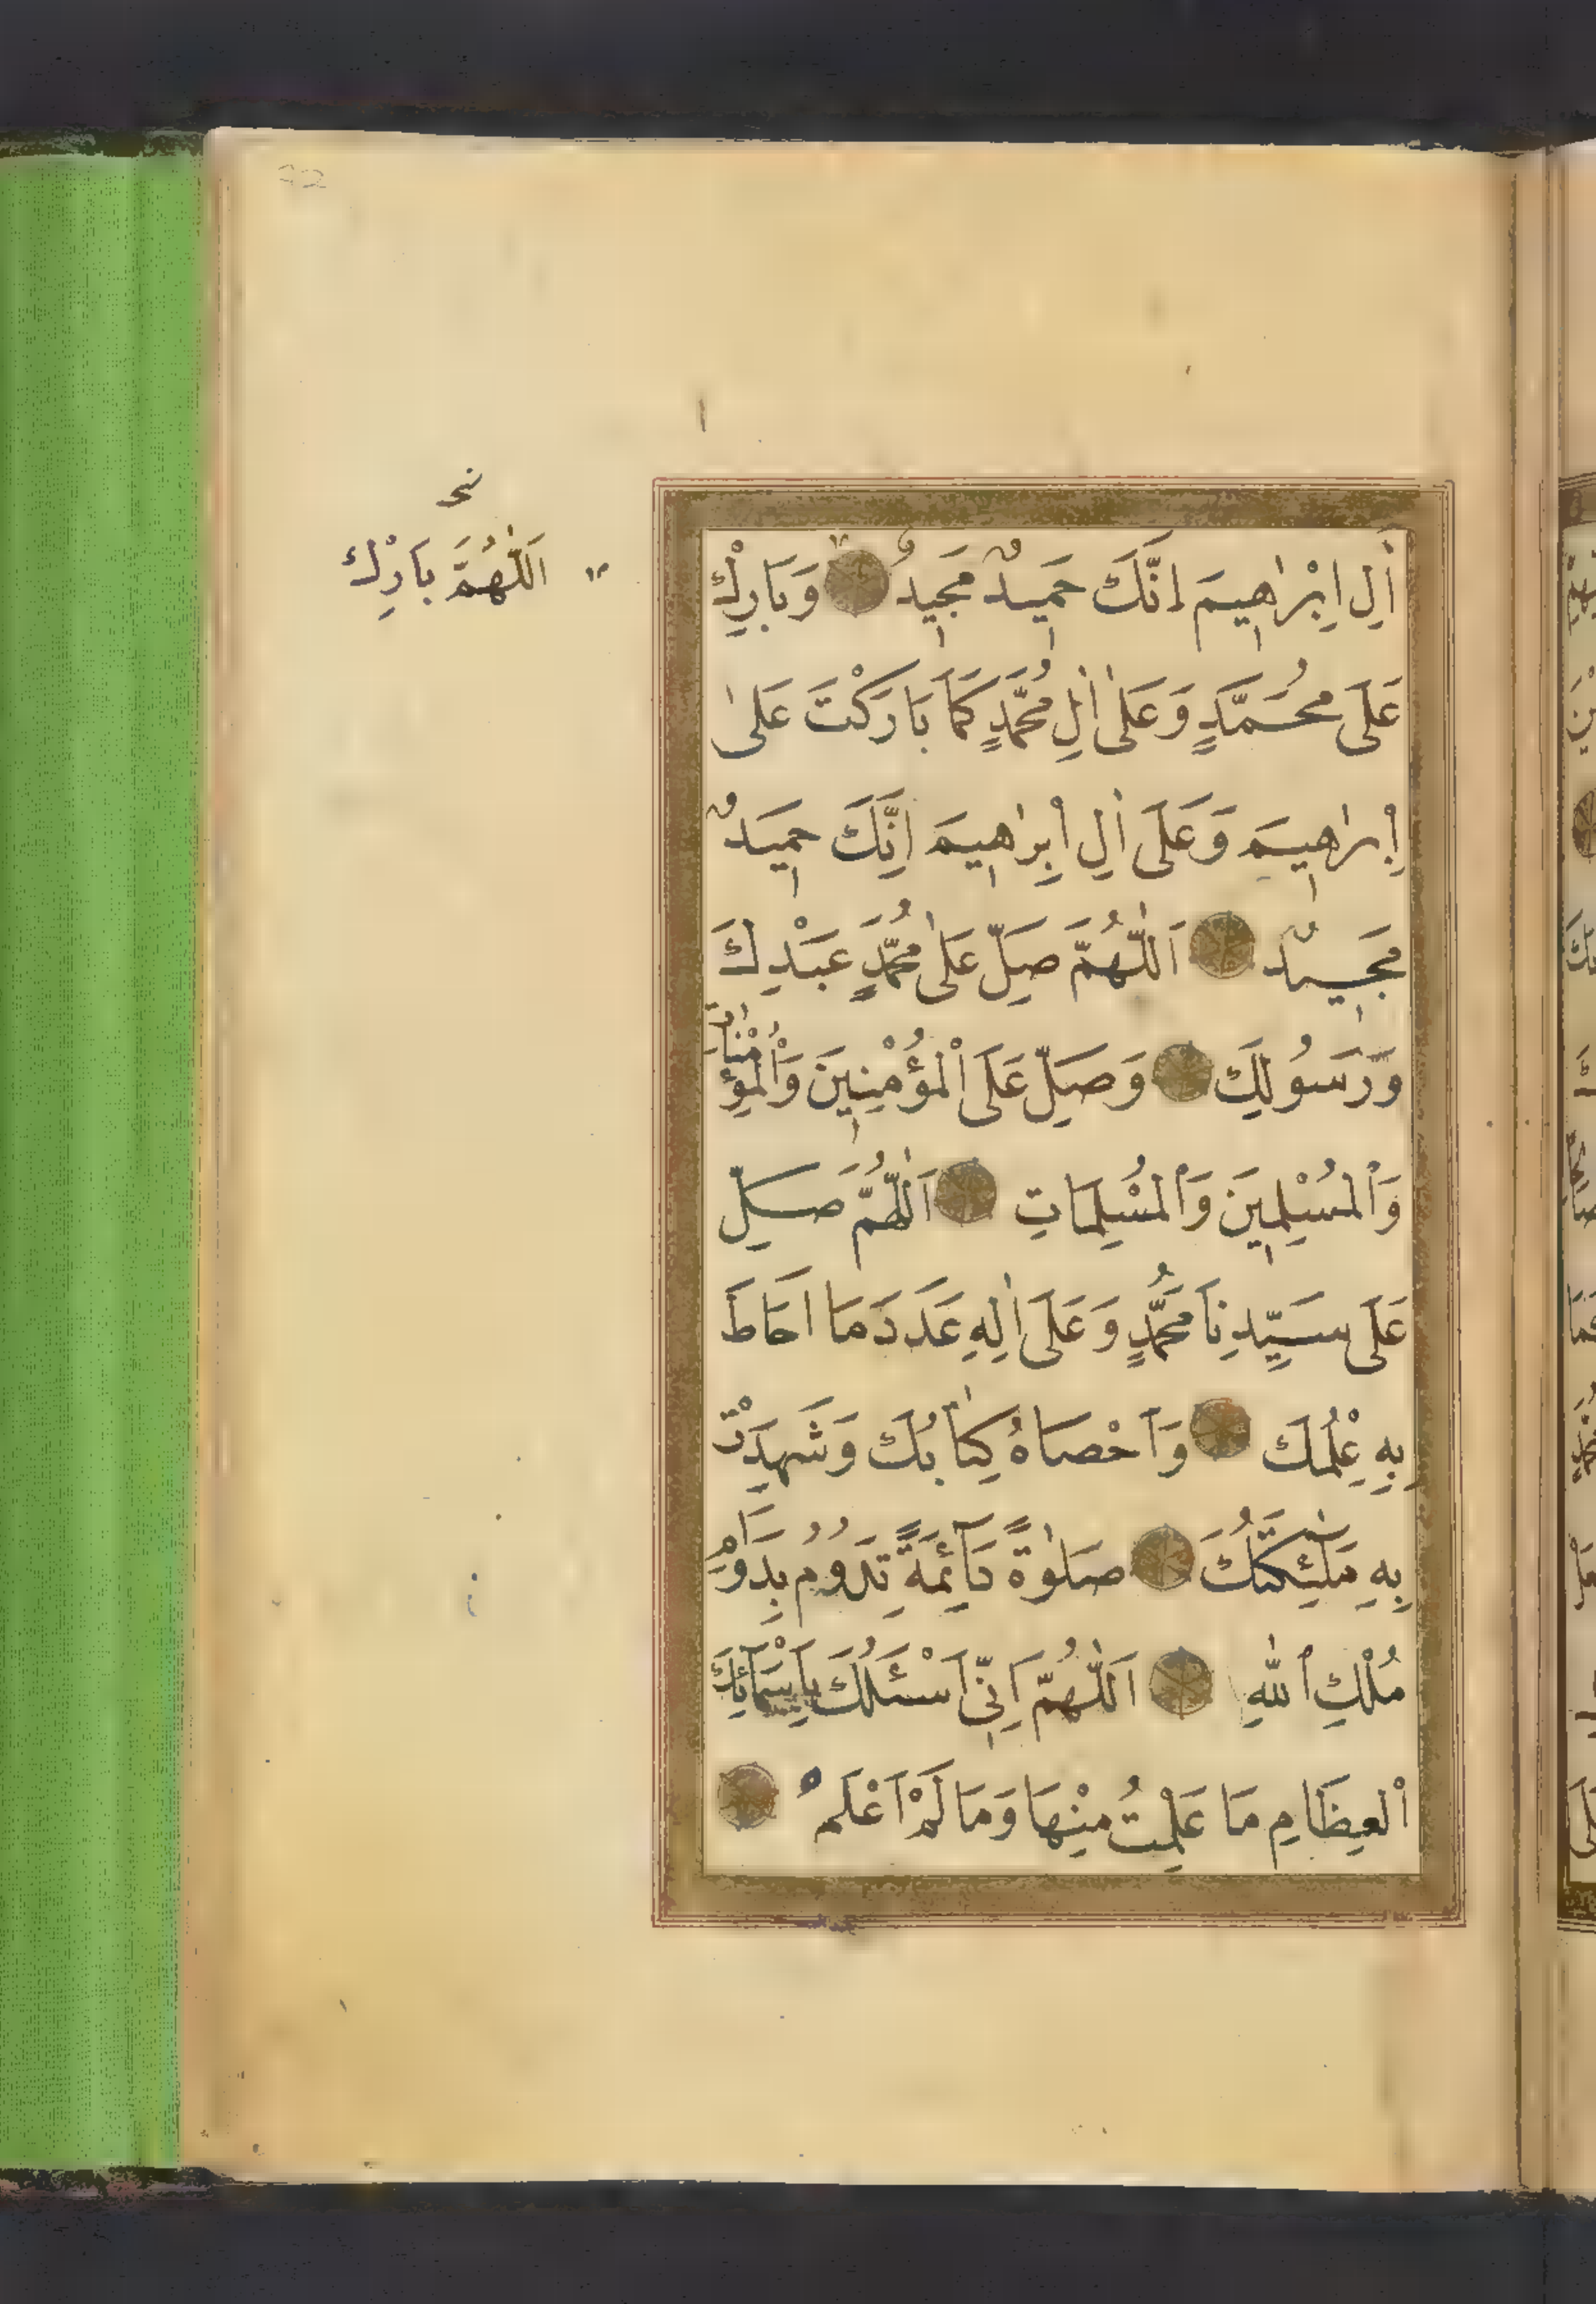 اٰلِ اِبْرٰاهيمَ اِنَّكَ حَميدٌ مَجيدٌ وَبَارِكْ
عَلَى مُحَمَّدٍ وَعَلٰى اٰلِ مُحَمَّدٍ كَمَا بَارَكْتَ عَلٰى
اِبْرٰاهيمَ وَعَلَى اٰلِ اِبْرٰاهيمَ اِنَّكَ حَميدٌ
مَجيدٌ اَللّٰهُمَّ صَلِّ عَلٰى مُحَمَّدٍ عَبْدِكَ
وَرَسُولِكَ وَصَلِّ عَلَى الْمُؤْمِنِينَ وَالْمُؤْمِنَاتِ
وَالْمُسْلِمِينَ وَالْمُسْلِمَاتِ اَللّٰهُمَّ صَلِّ
عَلَى سَيِّدِنَا مُحَمَّدٍ وَعَلَى اٰلِهِ عَدَدَ مَا اَحَاطَ
بِهِ عِلْمُكَ وَاَحْصَاهُ كِتَابُكَ وَشَهِدَتْ
بِهِ مَلٰٓئِكَتُكَ صَلٰوةً دَآئِمَةً تَدُومُ بِدَوَامِ
مُلْكِ اللّٰهِ اَللّٰهُمَّ اِنِّى اَسْئَلُكَ بِاَسْمَآئِكَ
الْعِظَامِ مَا عَلِمْتُ مِنْهَا وَمَا لَمْ اَعْلَمْ
اَللّٰهُمَّ بَارِكْ